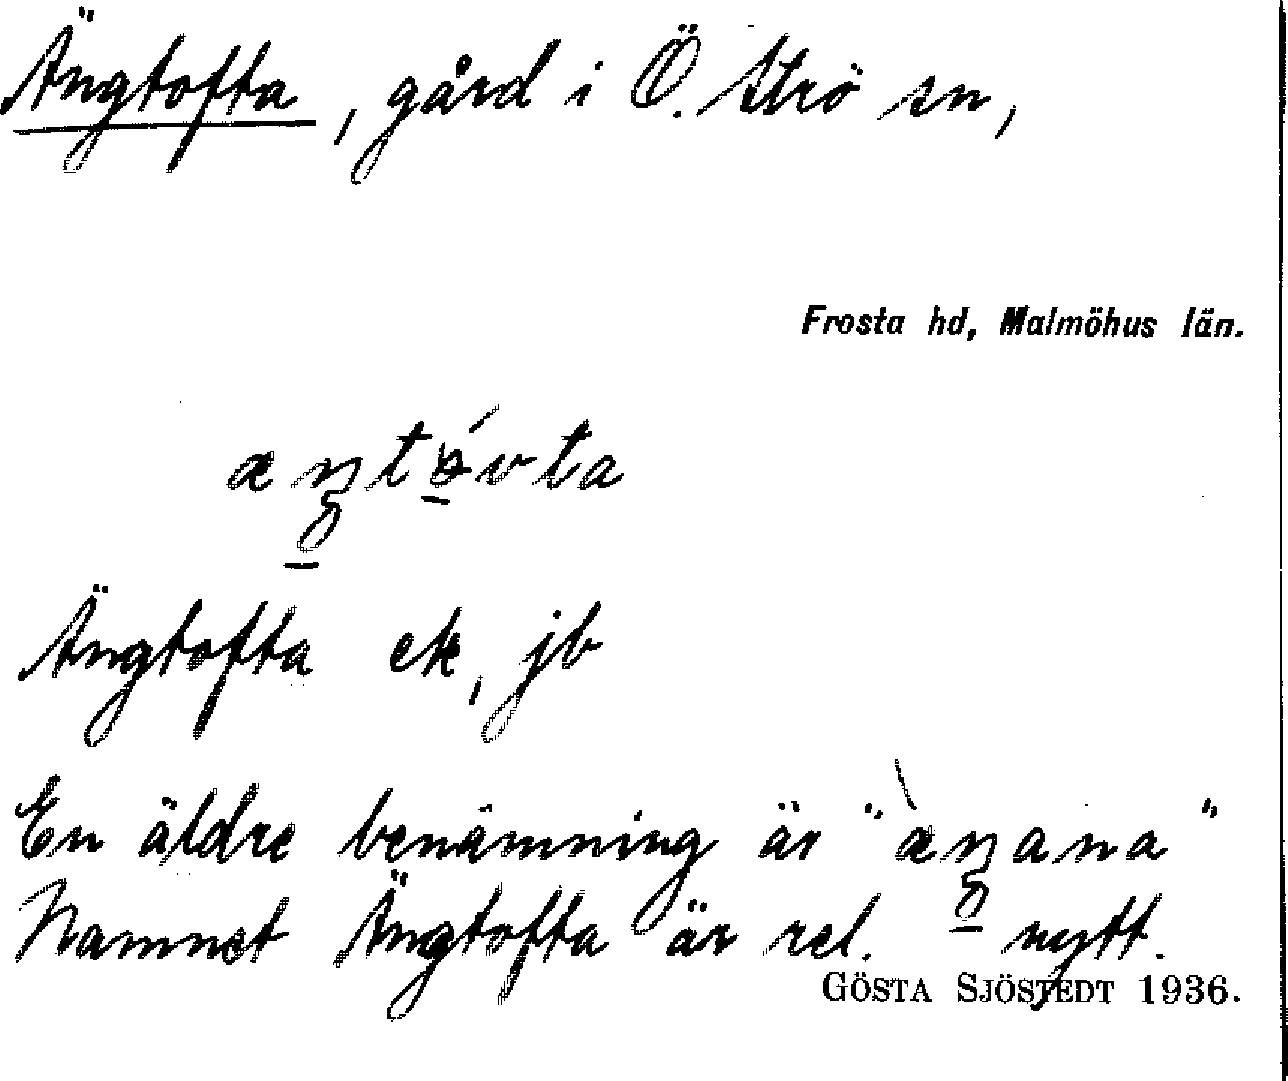 Ängtofta, gård i Ö. Strö sn,
Frosta hd, Malmöhus län.
Ängtofta ek, jb
En äldre benämning är "æŋana"
Namnet Ängtofta är rel. nytt.
GÖSTA SJÖSTEDT 1936.